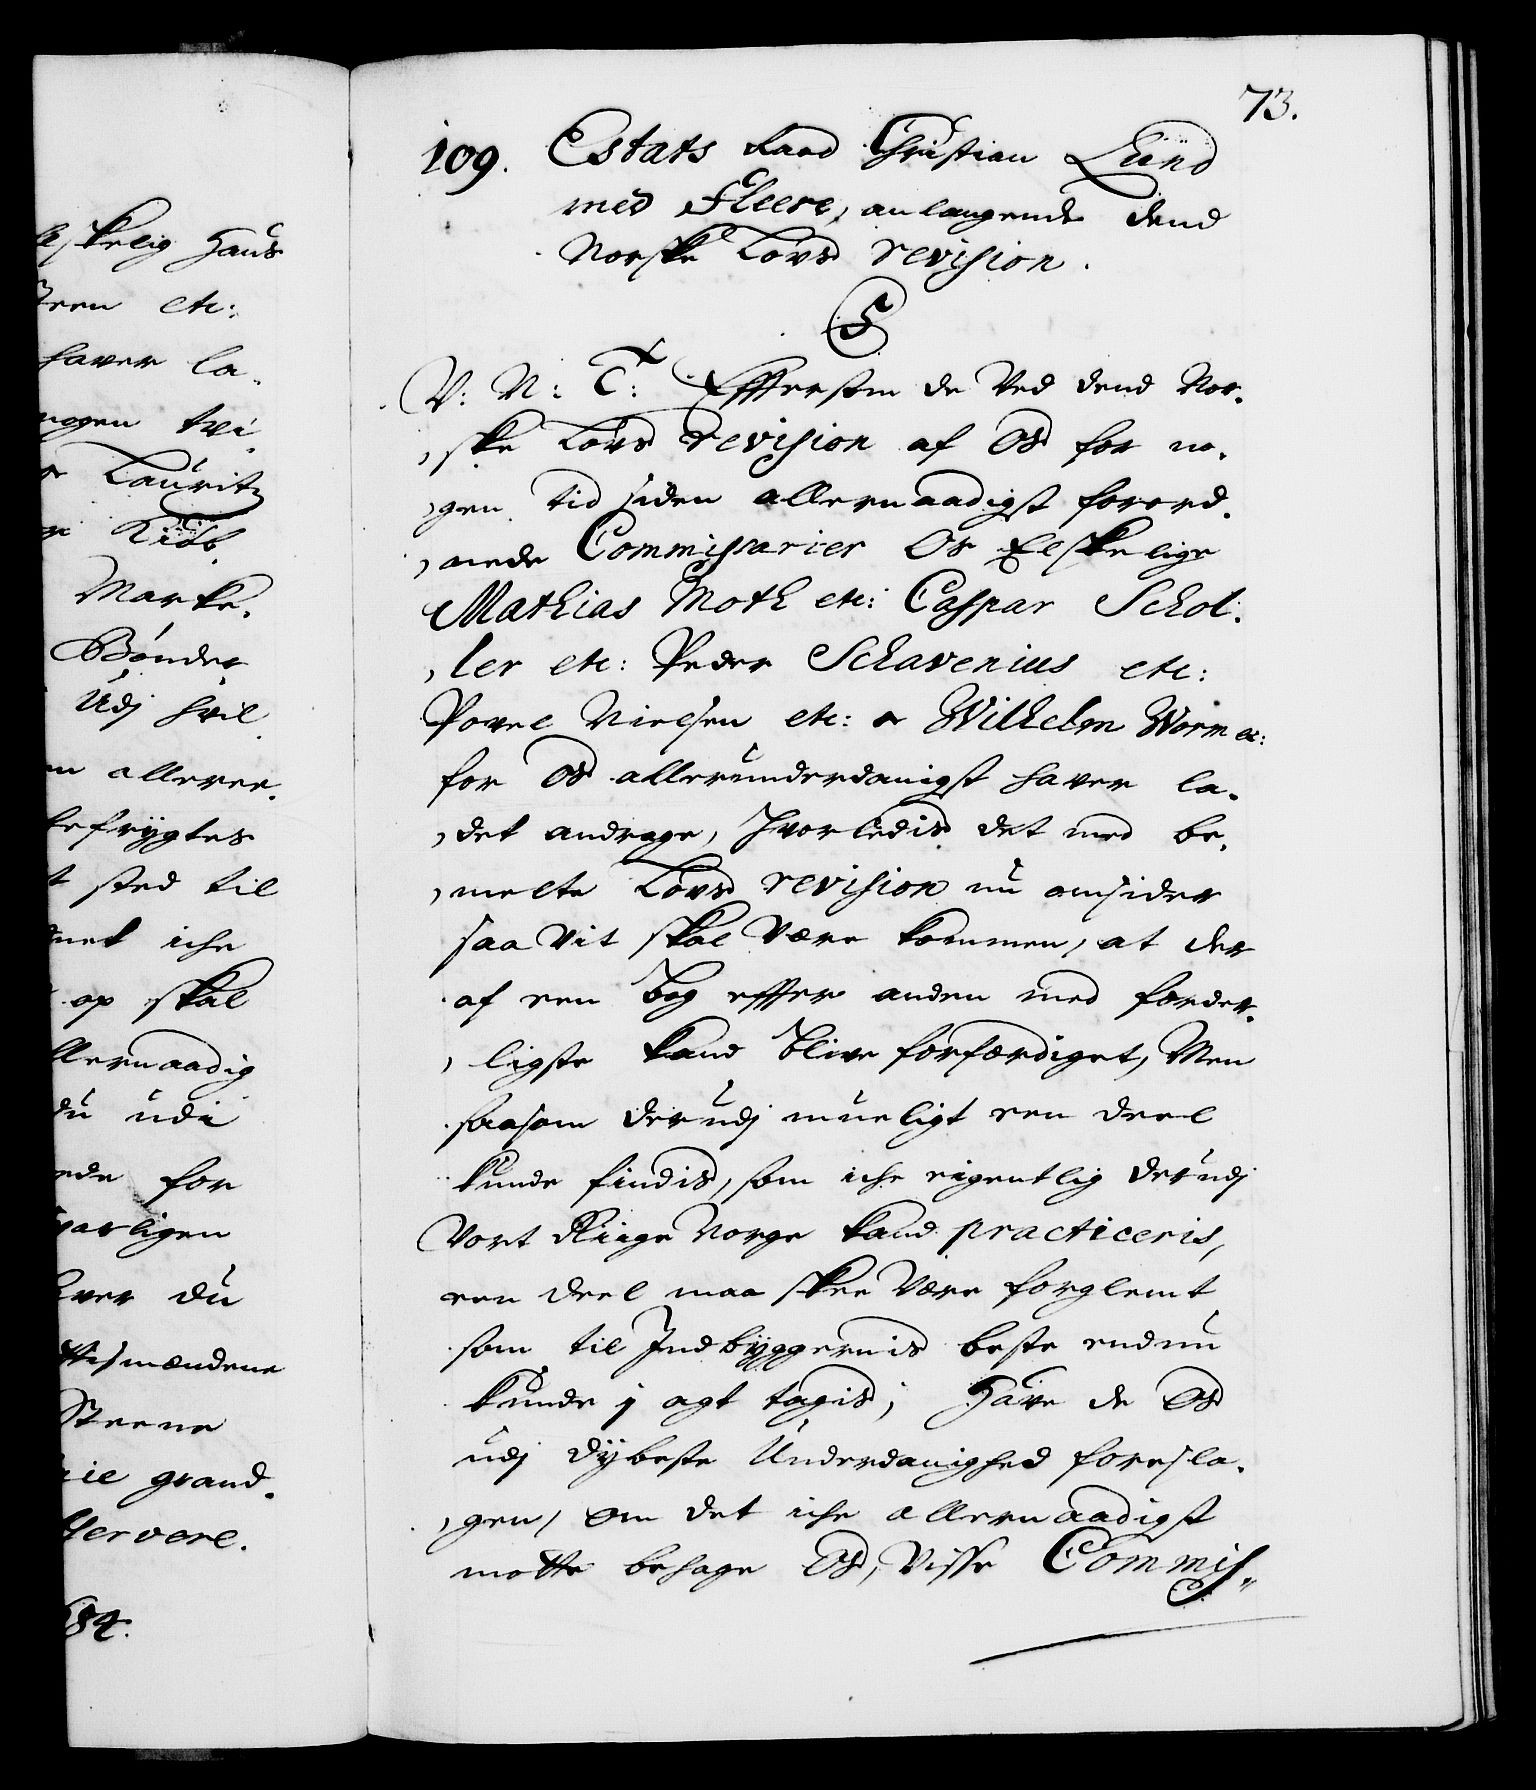 73.
109. Estats Raad Christian Lund
med Fleere, anlangende dend
Norske Lovs revision.
V: N: T: Efftersom de ved dend Nor-
ske Lovs revision af Os for no-
gen tid siden allernaadigst forord-
nede Commissarier Os Elskelige
Mathias Moth etc: Caspar Schøl-
ler etc: Peder Schavenius etc:
Povel Nielsen etc: Wilhelm Worm etc:
for Os allerunderdanigst haver la-
det andrage, hvorledis det med be-
melte Lovs revision nu omsider
saa vit skal være kommen, at der
af een bog effter anden med forder-
ligste kand blive forfærdiget, Men
saasom derudj mueligt een deel
kunde findis, som iche eigentlig derudj
Vort Riige Norge kand practiceris,
een deel maa skee være forglemt
som til Indbyggernis beste endnu
kunde j agt tagis; Have de Os
udj dybeste Underdanighed foresla-
gen, om det iche allernaadigst
motte behage Os, visse Commis-
elskelig Hans
Steen etc:
haver la-
nogen tvi
Lauritz
Kiøb
Marke-
Bønder
Udj hvil
alleree-
befrygtes
sted til
iche
op skal
allernaadig
du udi
for
varligen
du
Steene
grand-
tervere.
84.